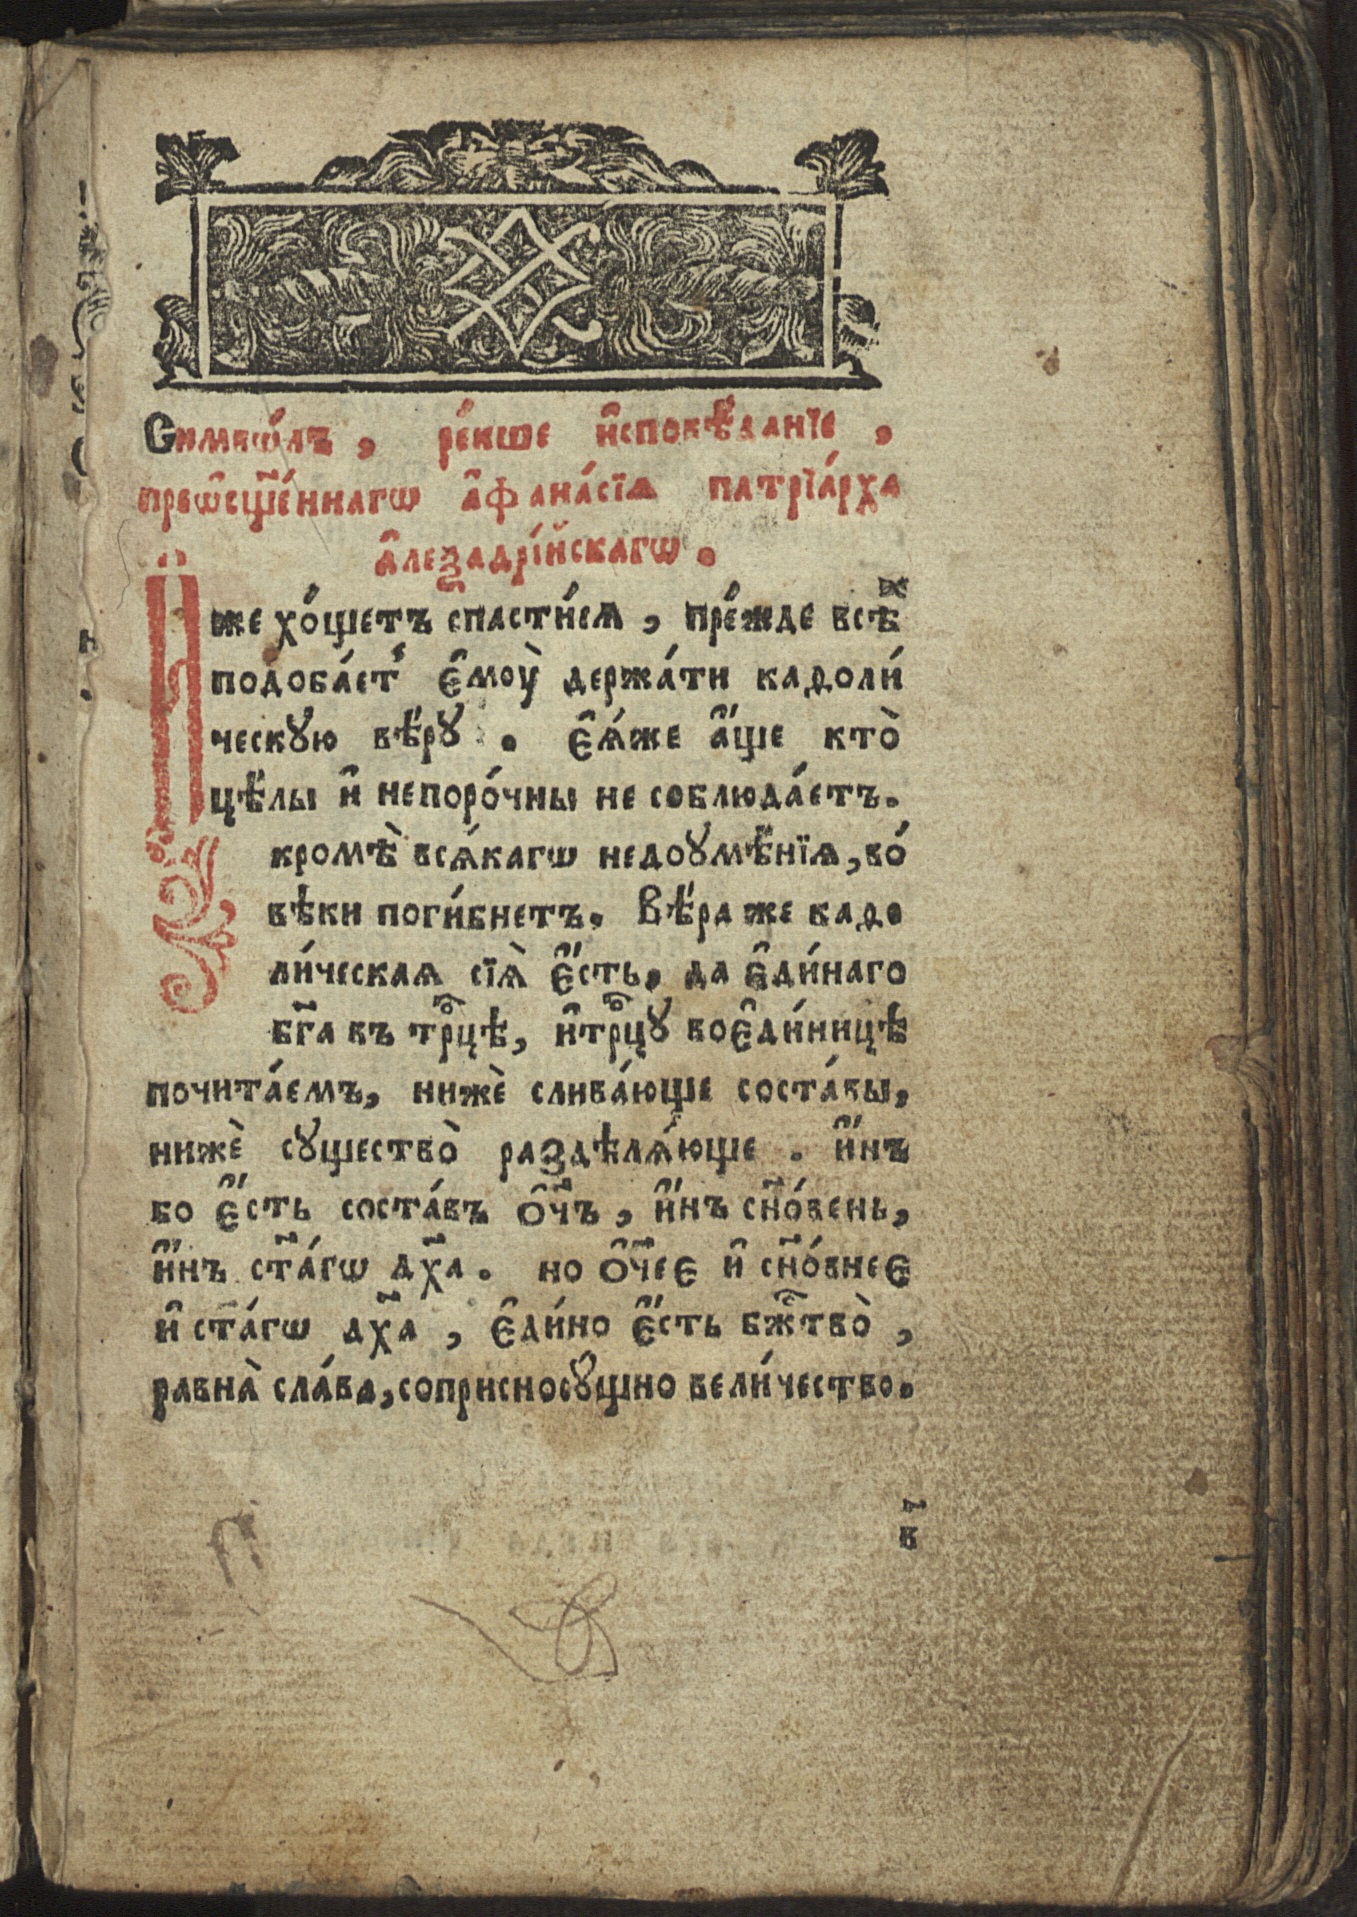 Сѷмво́лъ, ре́кше и҆сповѣ́данїе,
преѡ҆сщ҃е́ннагѡ а҆фана́сїѧ патрїа́рха
а҆леѯадрі́йскагѡ.
И҆́же хо́щетъ спасти́сѧ, пре́жде всѣ́хъ
подоба́етъ є҆моу̀ держа́ти каѳоли́
ческꙋю вѣ́рꙋ. є҆ѧ́же а҆́ще кто̀
цѣ́лы и҆ непоро́чны не соблюда́етъ.
кромѣ̀ всѧ́кагѡ недоꙋмѣ́нїѧ, во́
вѣки поги́бнетъ. Вѣ́ра же каѳо
ли́ческаѧ сїѧ̀ є҆́сть, да є҆ди́наго
бг҃а въ трⷪ҇цѣ, и҆трⷪ҇цꙋ воє҆ди́ницѣ
почита́емъ, нижѐ слива́юще соста́вы,
нижѐ сꙋщество̀ раздѣлѧ́юще. и҆́нъ
бо є҆́сть соста́въ ѻ҆ч҃ь, и҆́нъ сн҃о́вень,
и҆́нъ ст҃а́гѡ дх҃а. но ѻ҆ч҃еє и҆ сн҃о́внеє
и҆ ст҃а́гѡ дх҃а, є҆ди́но є҆́сть бж҃тво̀,
равна̀ сла́ва, соприсносꙋ́щно вели́чество.
в҃